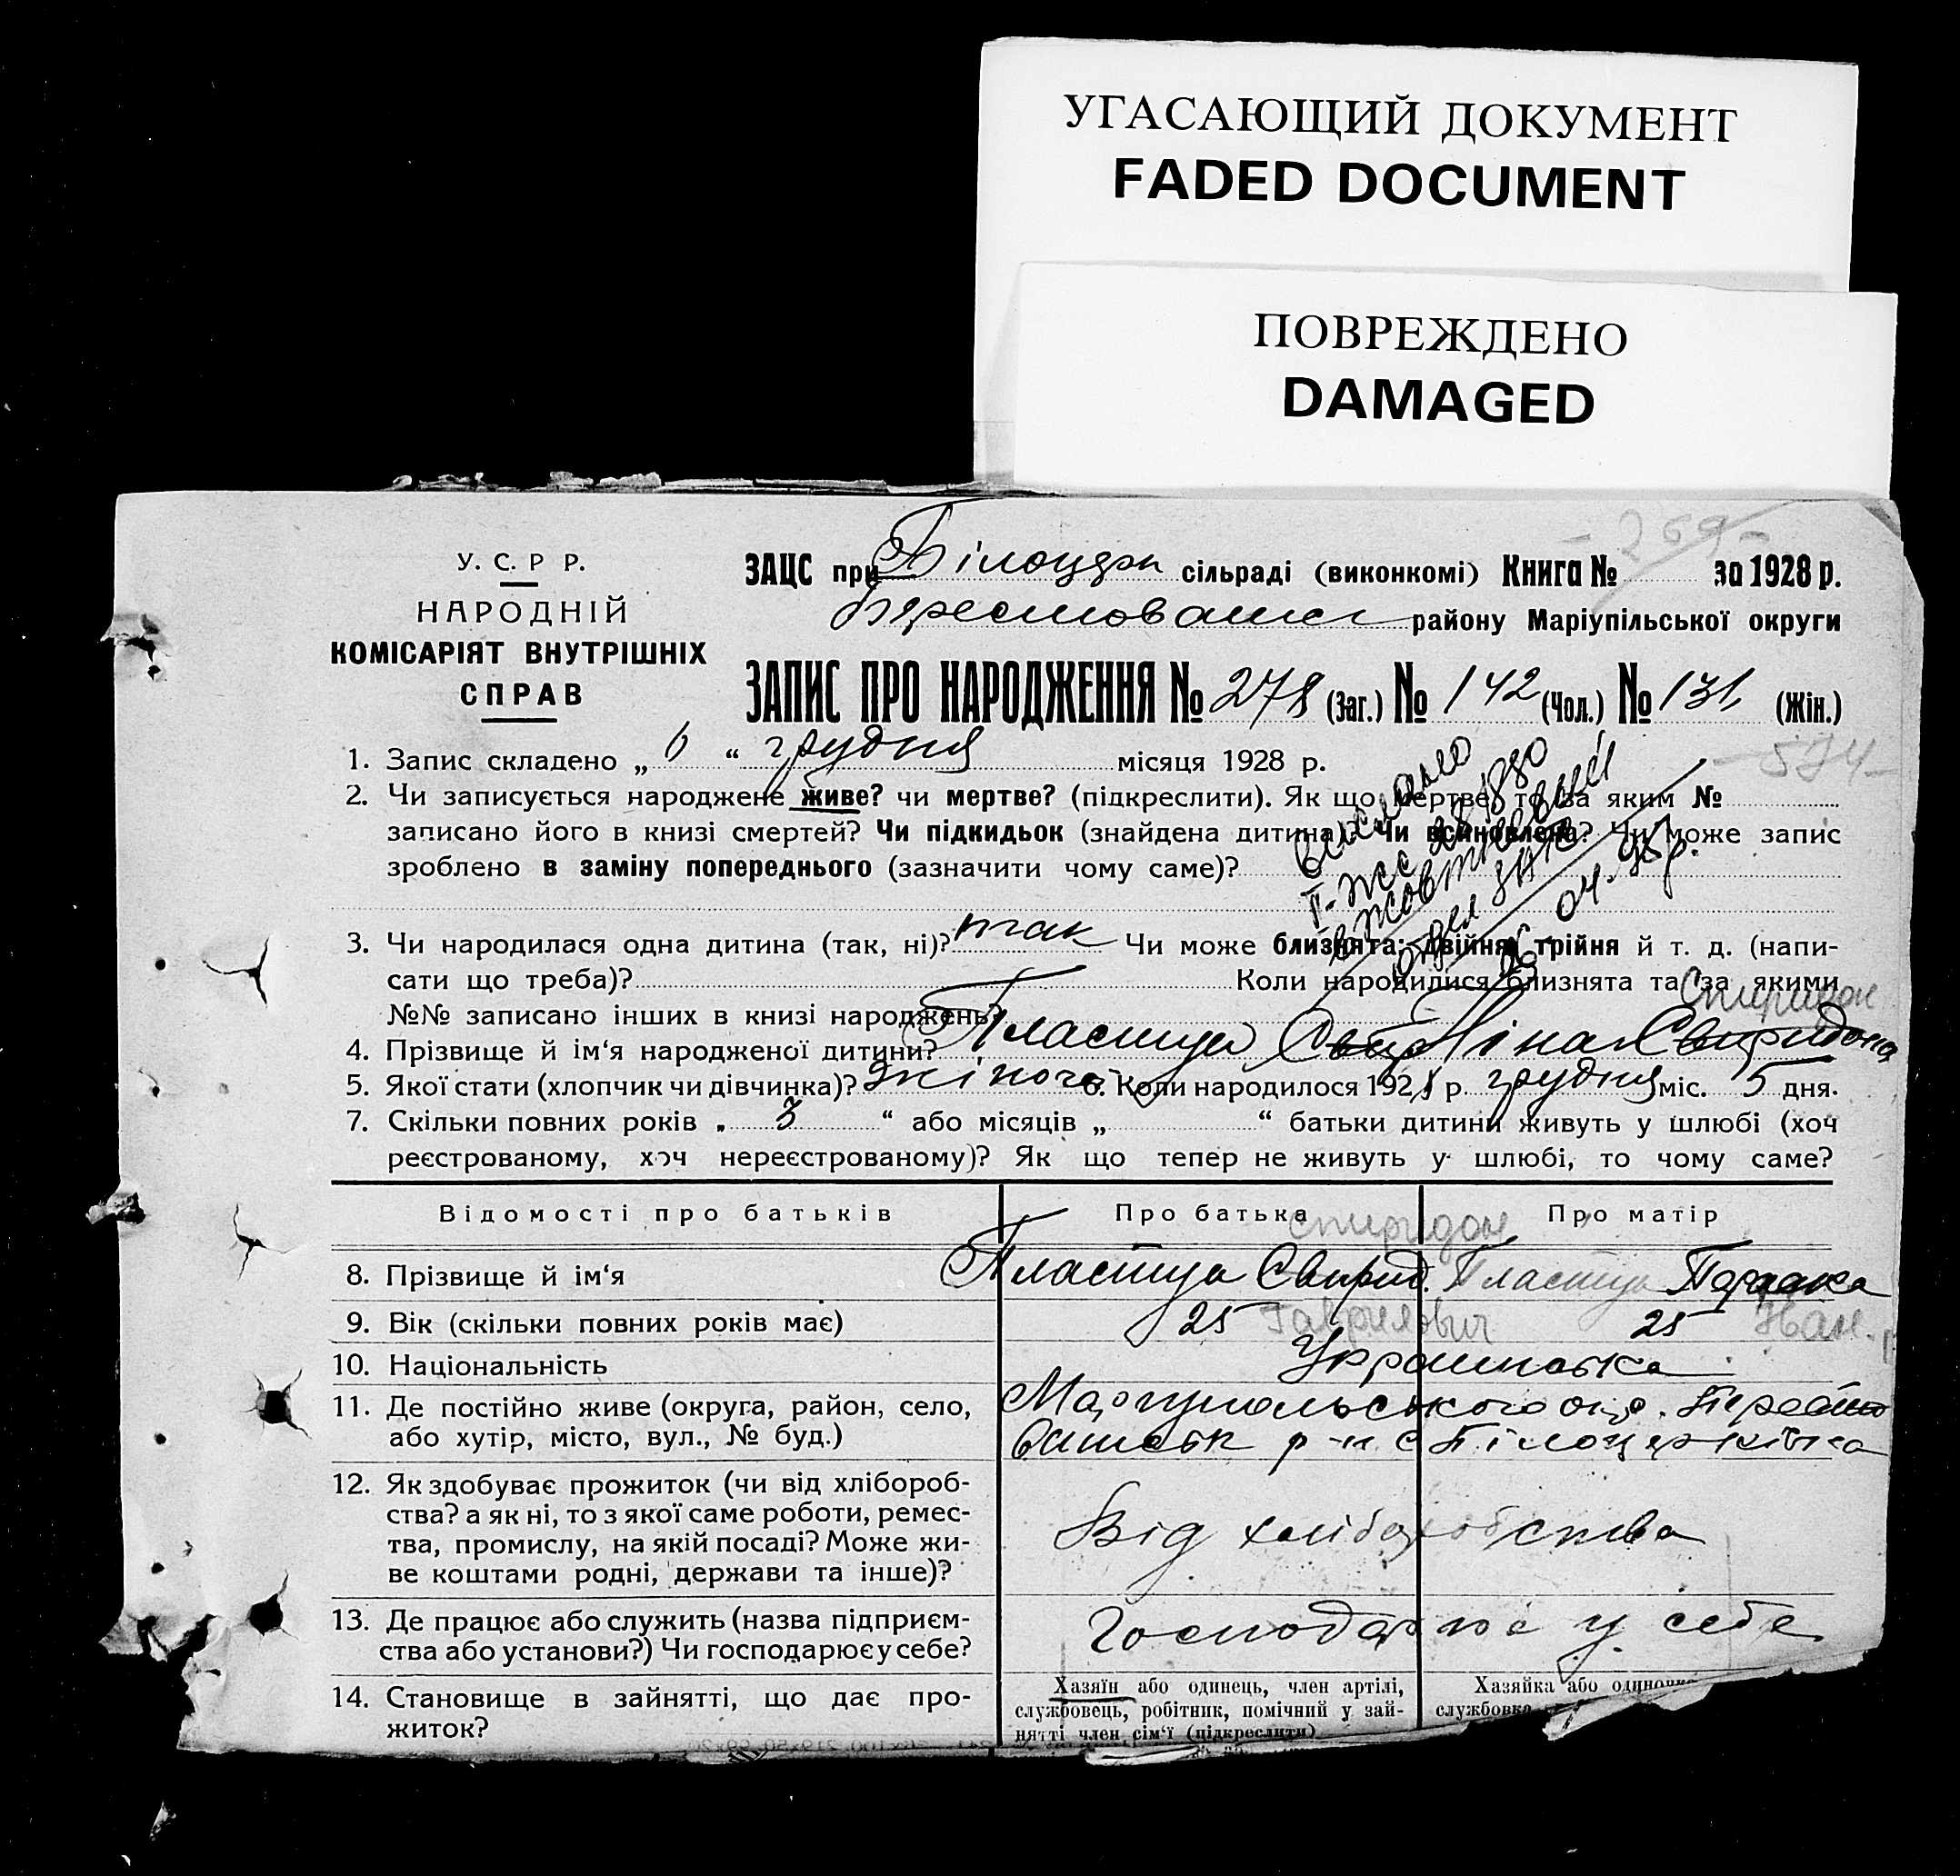 УГАСАЮЩИЙ ДОКУМЕНТ
FADED DOCUMENT
ПОВРЕЖДЕНО
DAMAGED
- 269 -
У. С. Р Р.
НАРОДНІЙ
КОМІСАРІЯТ ВНУТРІШНІХ
СПРАВ
ЗАЦС при Білоцерк сільраді (виконкомі) Книга № за 1928 р.
району Маріупільської округи
ЗАПИС ПРО НАРОДЖЕННЯ № 278 (Заг.) № 142 (Чол.) № 131 (Жін.)
- 594 -
1. Запис складено „ 6 “ грудня місяця 1928 р.
2. Чи записується народжене живе? чи мертве? (підкреслити). Як що мертве, то за яким №
записано його в книзі смертей? Чи підкидьок (знайдена дитина)? Чи всиновлена? Чи може запис
зроблено в заміну попереднього (зазначити чому саме)?
Выслано
3. Чи народилася одна дитина (так, ні)? так Чи може близнята: двійня, трійня й т. д. (напи-
сати що треба)? Коли народилися близнята та за якими
№№ записано інших в книзі народжень?
Спиридон
4. Прізвище й ім‘я народженої дитини? Пластун Свир Ніна Свиридона
5. Якої стати (хлопчик чи дівчинка)? жіноча 6. Коли народилося 1928 р. грудня міс. 5 дня.
7. Скільки повних років „ 3 “ або місяців „ “ батьки дитини живуть у шлюбі (хоч
реєстрованому, хоч нереєстрованому)? Як що тепер не живуть у шлюбі, то чому саме?
Відомості про батьків Про батька Про матір
Спиридон
8. Прізвище й ім‘я Пластун Свирид. Пластун Параска
9. Вік (скільки повних років має) 25 Гаврилович 25 Иван.
10. Національність Українська
11. Де постійно живе (округа, район, село, Маріупольського окр.
або хутір, місто, вул., № буд.) р-н с Білоцерківка
12. Як здобуває прожиток (чи від хлібороб-
ства? а як ні, то з якої саме роботи, ремес-
тва, промислу, на якій посаді? Може жи-
ве коштами родні, держави та інше)?
Від хліборобства
13. Де працює або служить (назва підприєм-
ства або установи?) Чи господарює у себе?
Господарює у себе
14. Становище в зайнятті, що дає про-
житок?
Хазяїн або одинець, член артілі,
службовець, робітник, помічний у зай-
нятті член сім‘ї (підкреслити)
Хазяйка або